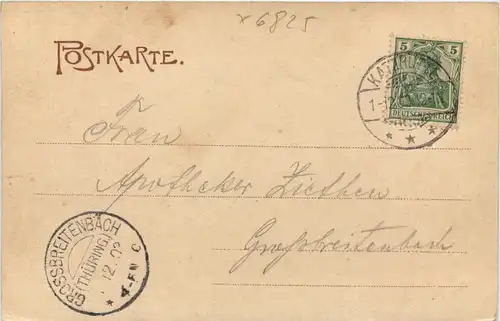 x 6825
POSTKARTE.
5 5
DEUTSCHES REICH
Frau
Apotheker Ziethen
Großbreitenbach
GROSSBREITENBACH
(THÜRING)
12.02
4-5N